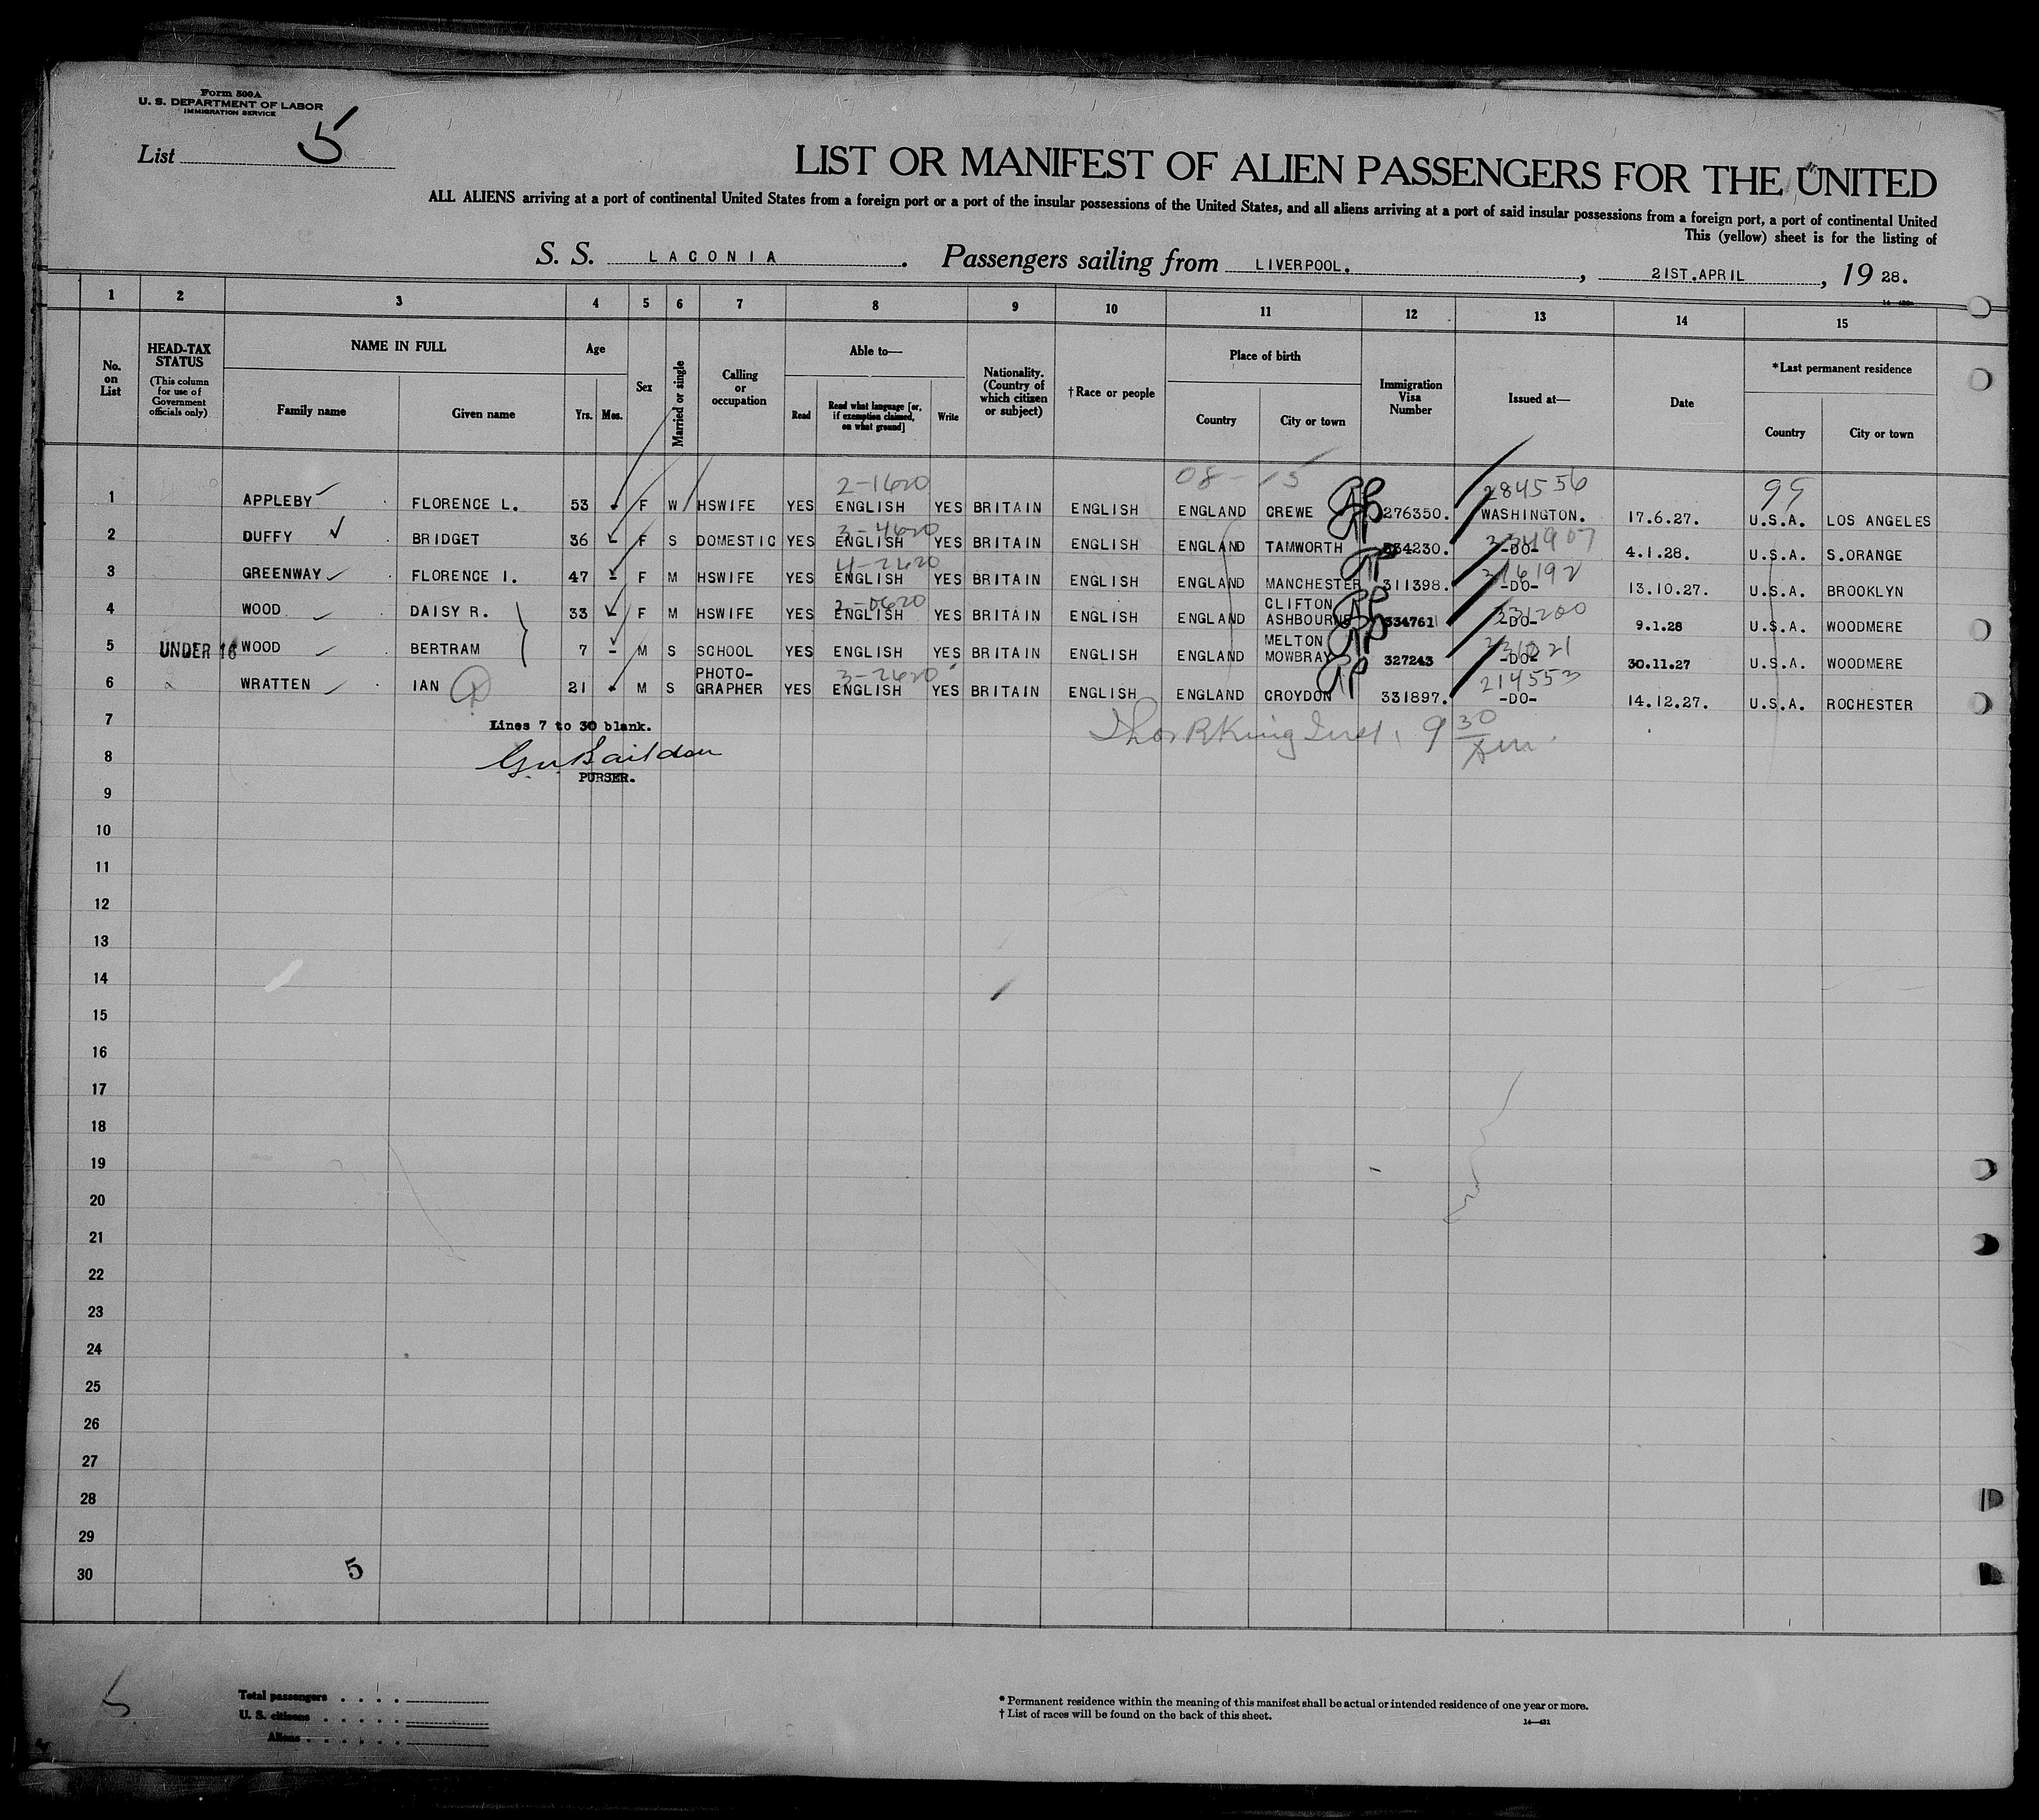 Form 500A
U. S. DEPARTMENT OF LABOR
IMMIGRATION SERVICE
List 5
LIST OR MANIFEST OF ALIEN PASSENGERS FOR THE UNITED
ALL ALIENS arriving at a port of continental United States from a foreign port or a port of the insular possessions of the United States, and all aliens arriving at a port of said insular possessions from a foreign port, a port of continental United
This (yellow) sheet is for the listing of
S. S. LACONIA . Passengers sailing from LIVERPOOL. , 21ST.APRIL , 19 28.
1 2 3 4 5 6 7 8 9 10 11 12 13 14 15
No. on List
HEAD-TAX STATUS (This column for use of Government officials only)
NAME IN FULL
Family name
Given name
Age
Yrs.
Mos.
Sex
Married or single
Calling or occupation
Able to—
Read
Read what language [or, if exemption claimed, on what ground]
Write
Nationality. (Country of which citizen or subject)
†Race or people
Place of birth
Country
City or town
Immigration Visa Number
Issued at—
Date
*Last permanent residence
Country
City or town
08-15
2-1620 284556 99
1 APPLEBY FLORENCE L. 53 F W HSWIFE YES ENGLISH YES BRITAIN ENGLISH ENGLAND CREWE 276350. WASHINGTON. 17.6.27. U.S.A. LOS ANGELES
3-4620
2 DUFFY BRIDGET 36 - F S DOMESTIC YES ENGLISH YES BRITAIN ENGLISH ENGLAND TAMWORTH 334230. -DO- 4.1.28. U.S.A. S.ORANGE
4-2620 316192
3 GREENWAY FLORENCE I. 47 - F M HSWIFE YES ENGLISH YES BRITAIN ENGLISH ENGLAND MANCHESTER 311398. -DO- 13.10.27. U.S.A. BROOKLYN
2-0620 331200
4 WOOD DAISY R. 33 F M HSWIFE YES ENGLISH YES BRITAIN ENGLISH ENGLAND CLIFTON ASHBOURNE 334761 -DO- 9.1.28 U.S.A. WOODMERE
5 UNDER 16 WOOD BERTRAM 7 - M S SCHOOL YES ENGLISH YES BRITAIN ENGLISH ENGLAND MELTON MOWBRAY 327243 -DO- 30.11.27 U.S.A. WOODMERE
3-2620 214553
6 WRATTEN IAN 21 M S PHOTO-GRAPHER YES ENGLISH YES BRITAIN ENGLISH ENGLAND CROYDON 331897. -DO- 14.12.27. U.S.A. ROCHESTER
7
Lines 7 to 30 blank.
Thos R King Insp. 9 30 Am
8
PURSER.
9
10
11
12
13
14
15
16
17
18
19
20
21
22
23
24
25
26
27
28
29
30
5
5
Total passengers . . . .
U. S. citizens . . . . .
Aliens . . . . . .
* Permanent residence within the meaning of this manifest shall be actual or intended residence of one year or more.
† List of races will be found on the back of this sheet.
14—431